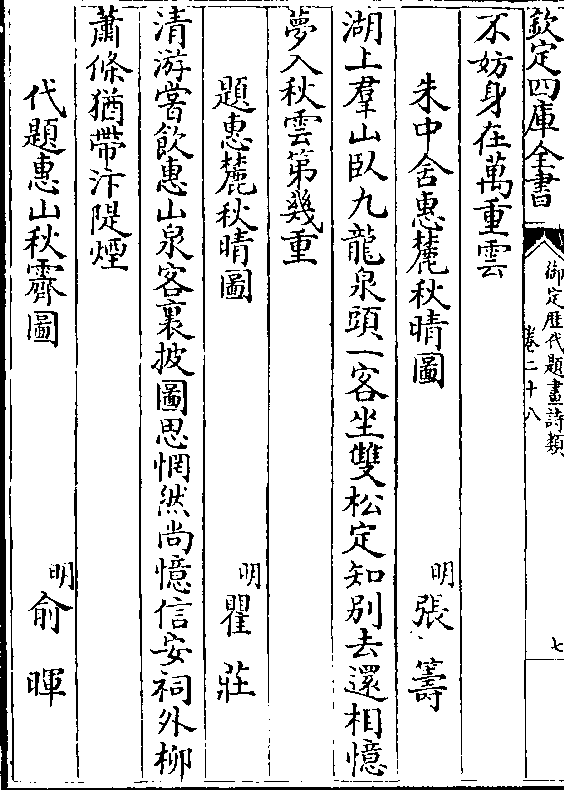 欽定四庫全書
御定歴代題畫詩類
卷二十八
七
不妨身在萬重雲
朱中舍惠麓秋晴圖
明張籌
湖上羣山臥九龍泉頭一客坐雙松定知別去還相憶
夢入秋雲第幾重
題惠麓秋晴圖
明瞿莊
清游嘗飲惠山泉客裏披圖思惘然尚憶信安祠外柳
蕭條猶帶汴隄煙
代題惠山秋霽圖
明俞暉